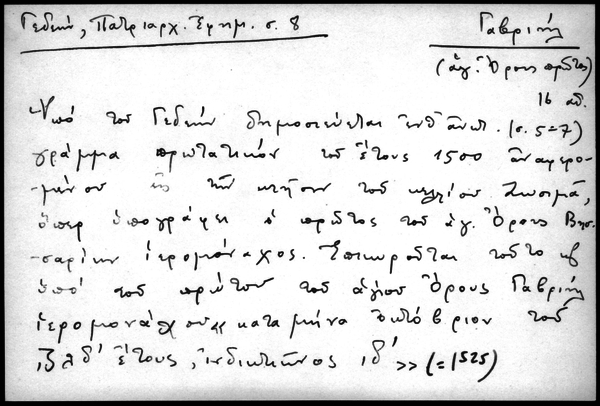 Γεδεών, Πατριαρχ. Ἐφημ. σ. 8
Γαβριήλ
(ἁγ. Ὄρους πρῶτος)
16 αἰ.
Ὑπό τοῦ Γεδεών δημοσιεύεται ἐνθ' ἀνωτ. (σ. 5-7)
γράμμα πρωτατικόν τοῦ ἔτους 1500 ἀναφερο-
-μένου εἰς τήν κτῆσιν τοῦ κελλίου Ζωσιμᾶ,
ὅπερ ὑπογράφει ὁ πρῶτος τοῦ ἁγ. Ὄρους Βησ-
-σαρίων ἱερομόναχος. Ἐπικυροῦται τοῦτο καί
ὑπό τοῦ πρώτου τοῦ ἁγίου Ὄρους Γαβριήλ
ἱερομονάχου "κατά μῆνα ὀκτώβριον τοῦ
͵ζλδ' ἔτους, ἰνδικτιῶνος ιδ'" (=1525)